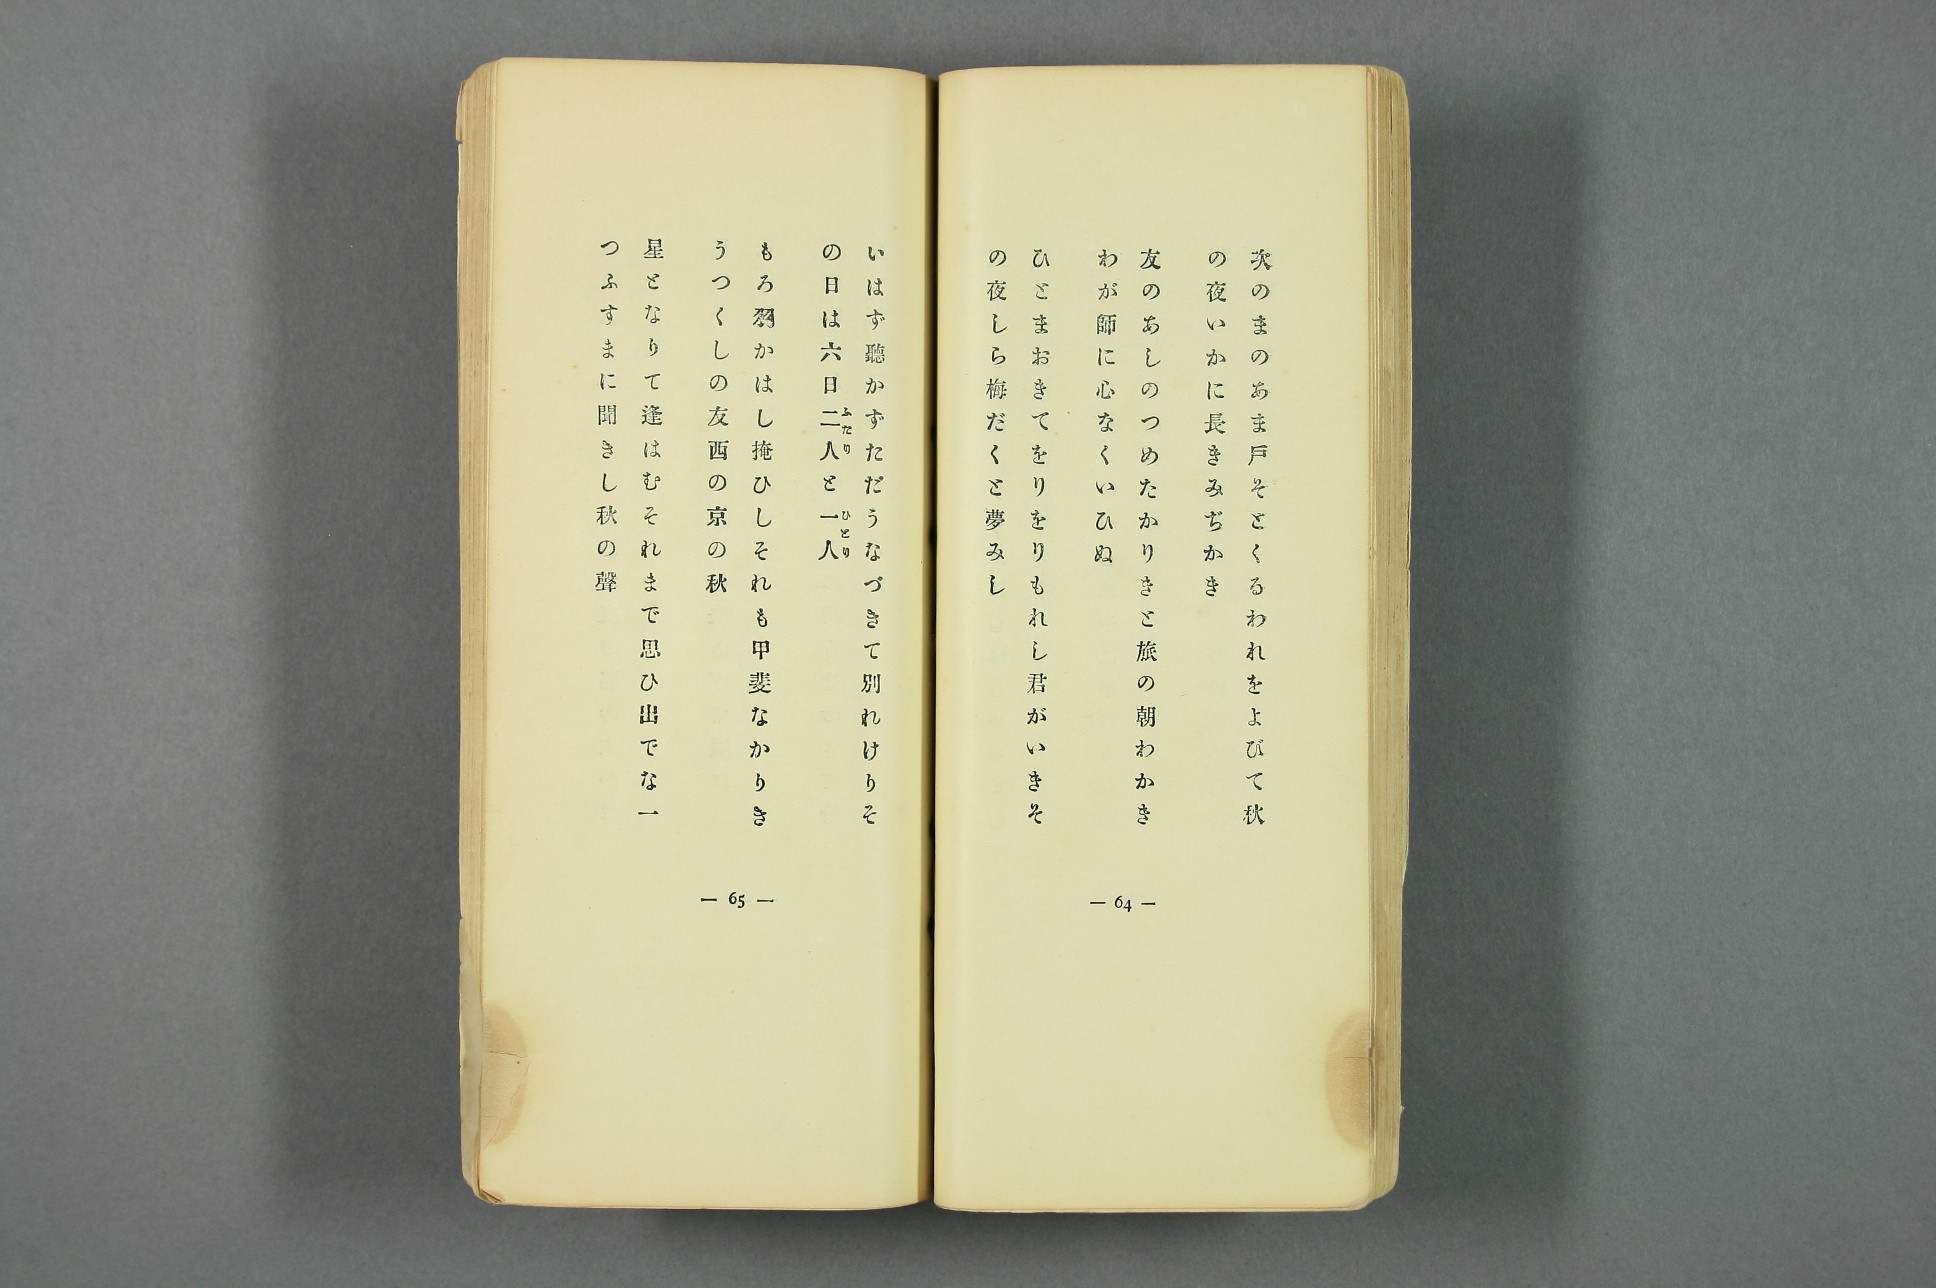 次のまのあま戸そとくるわれをよびて秋
の夜いかに長きみぢかき
友のあしのつめたかりきと旅の朝わかき
わが師に心なくいひぬ
ひとまおきてをりをりもれし君がいきそ
の夜しら梅だくと夢みし
— 64 —
いはず聽かずただうなづきて別れけりそ
の日は六日二人と一人
ふたり
ひとり
もろ羽かはし掩ひしそれも甲斐なかりき
うつくしの友西の京の秋
星となりて逢はむそれまで思ひ出でな一
つふすまに聞きし秋の聲
— 65 —